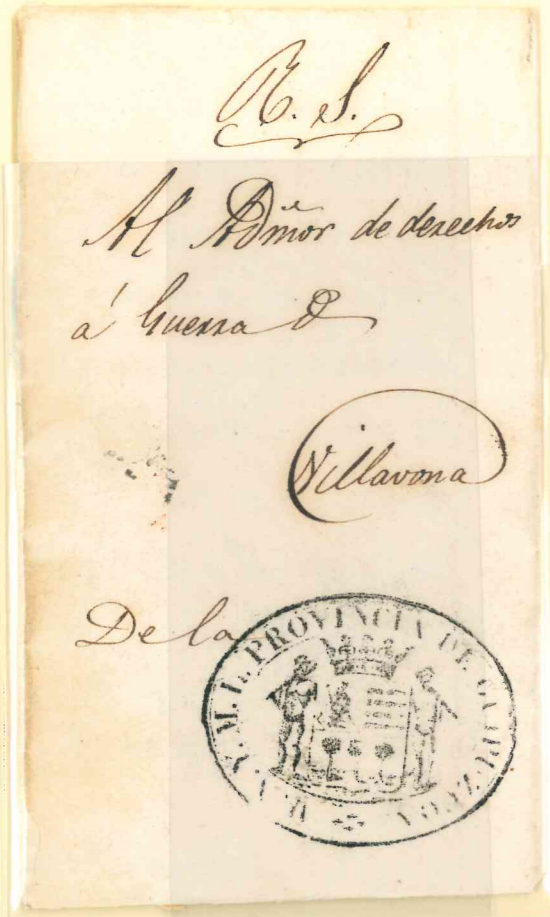 R. S.
Al Admor de derechos
á Guerra de
Villavona
De la
M. N. Y. M. L. PROVINCIA DE GUIPUZCOA